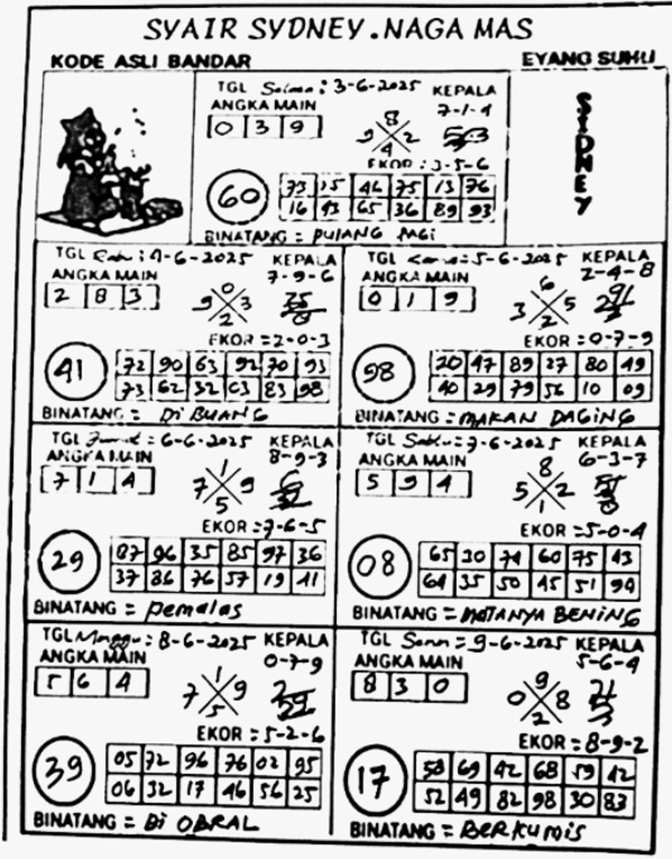 SYAIR SYDNEY.NAGA MAS
KODE ASLI BANDAR
EYANG SUHU
TGL : 3-6-2025
KEPALA
7-1-4
ANGKA MAIN
0 3 9
8
9 2
4
EKOR : 3-5-6
60
73 15 46 75 13 76
16 43 65 36 89 93
BINATANG = PULANG PAGI
SIDNEY
TGL Rabu : 4-6-2025
KEPALA
7-9-6
ANGKA MAIN
2 8 3
0
9 3
2
EKOR = 2-0-3
41
72 90 63 92 70 93
73 62 32 03 83 98
BINATANG = Di BUANG
TGL Kamis : 5-6-2025
KEPALA
2-4-8
ANGKA MAIN
0 1 9
6
3 5
2
EKOR = 0-7-9
98
20 47 89 27 80 49
40 29 79 56 10 09
BINATANG = MAKAN DAGING
TGL Jumat = 6-6-2025
KEPALA
8-9-3
ANGKA MAIN
7 1 4
1
7 9
5
EKOR = 7-6-5
29
87 96 35 85 97 36
37 86 76 57 19 41
BINATANG = pemalas
TGL Sabtu = 7-6-2025
KEPALA
6-3-7
ANGKA MAIN
5 9 4
8
5 2
1
EKOR = 5-0-4
08
65 30 74 60 75 43
64 35 50 45 51 94
BINATANG = MATANYA BENING
TGL Minggu : 8-6-2025
KEPALA
0-7-9
ANGKA MAIN
5 6 4
1
7 9
5
EKOR = 5-2-6
39
05 72 96 76 02 95
06 32 17 46 56 25
BINATANG = Di OBRAL
TGL Senin = 9-6-2025
KEPALA
5-6-4
ANGKA MAIN
8 3 0
9
0 8
2
EKOR = 8-9-2
17
58 69 42 68 59 42
52 49 82 98 30 83
BINATANG = BERKUMIS